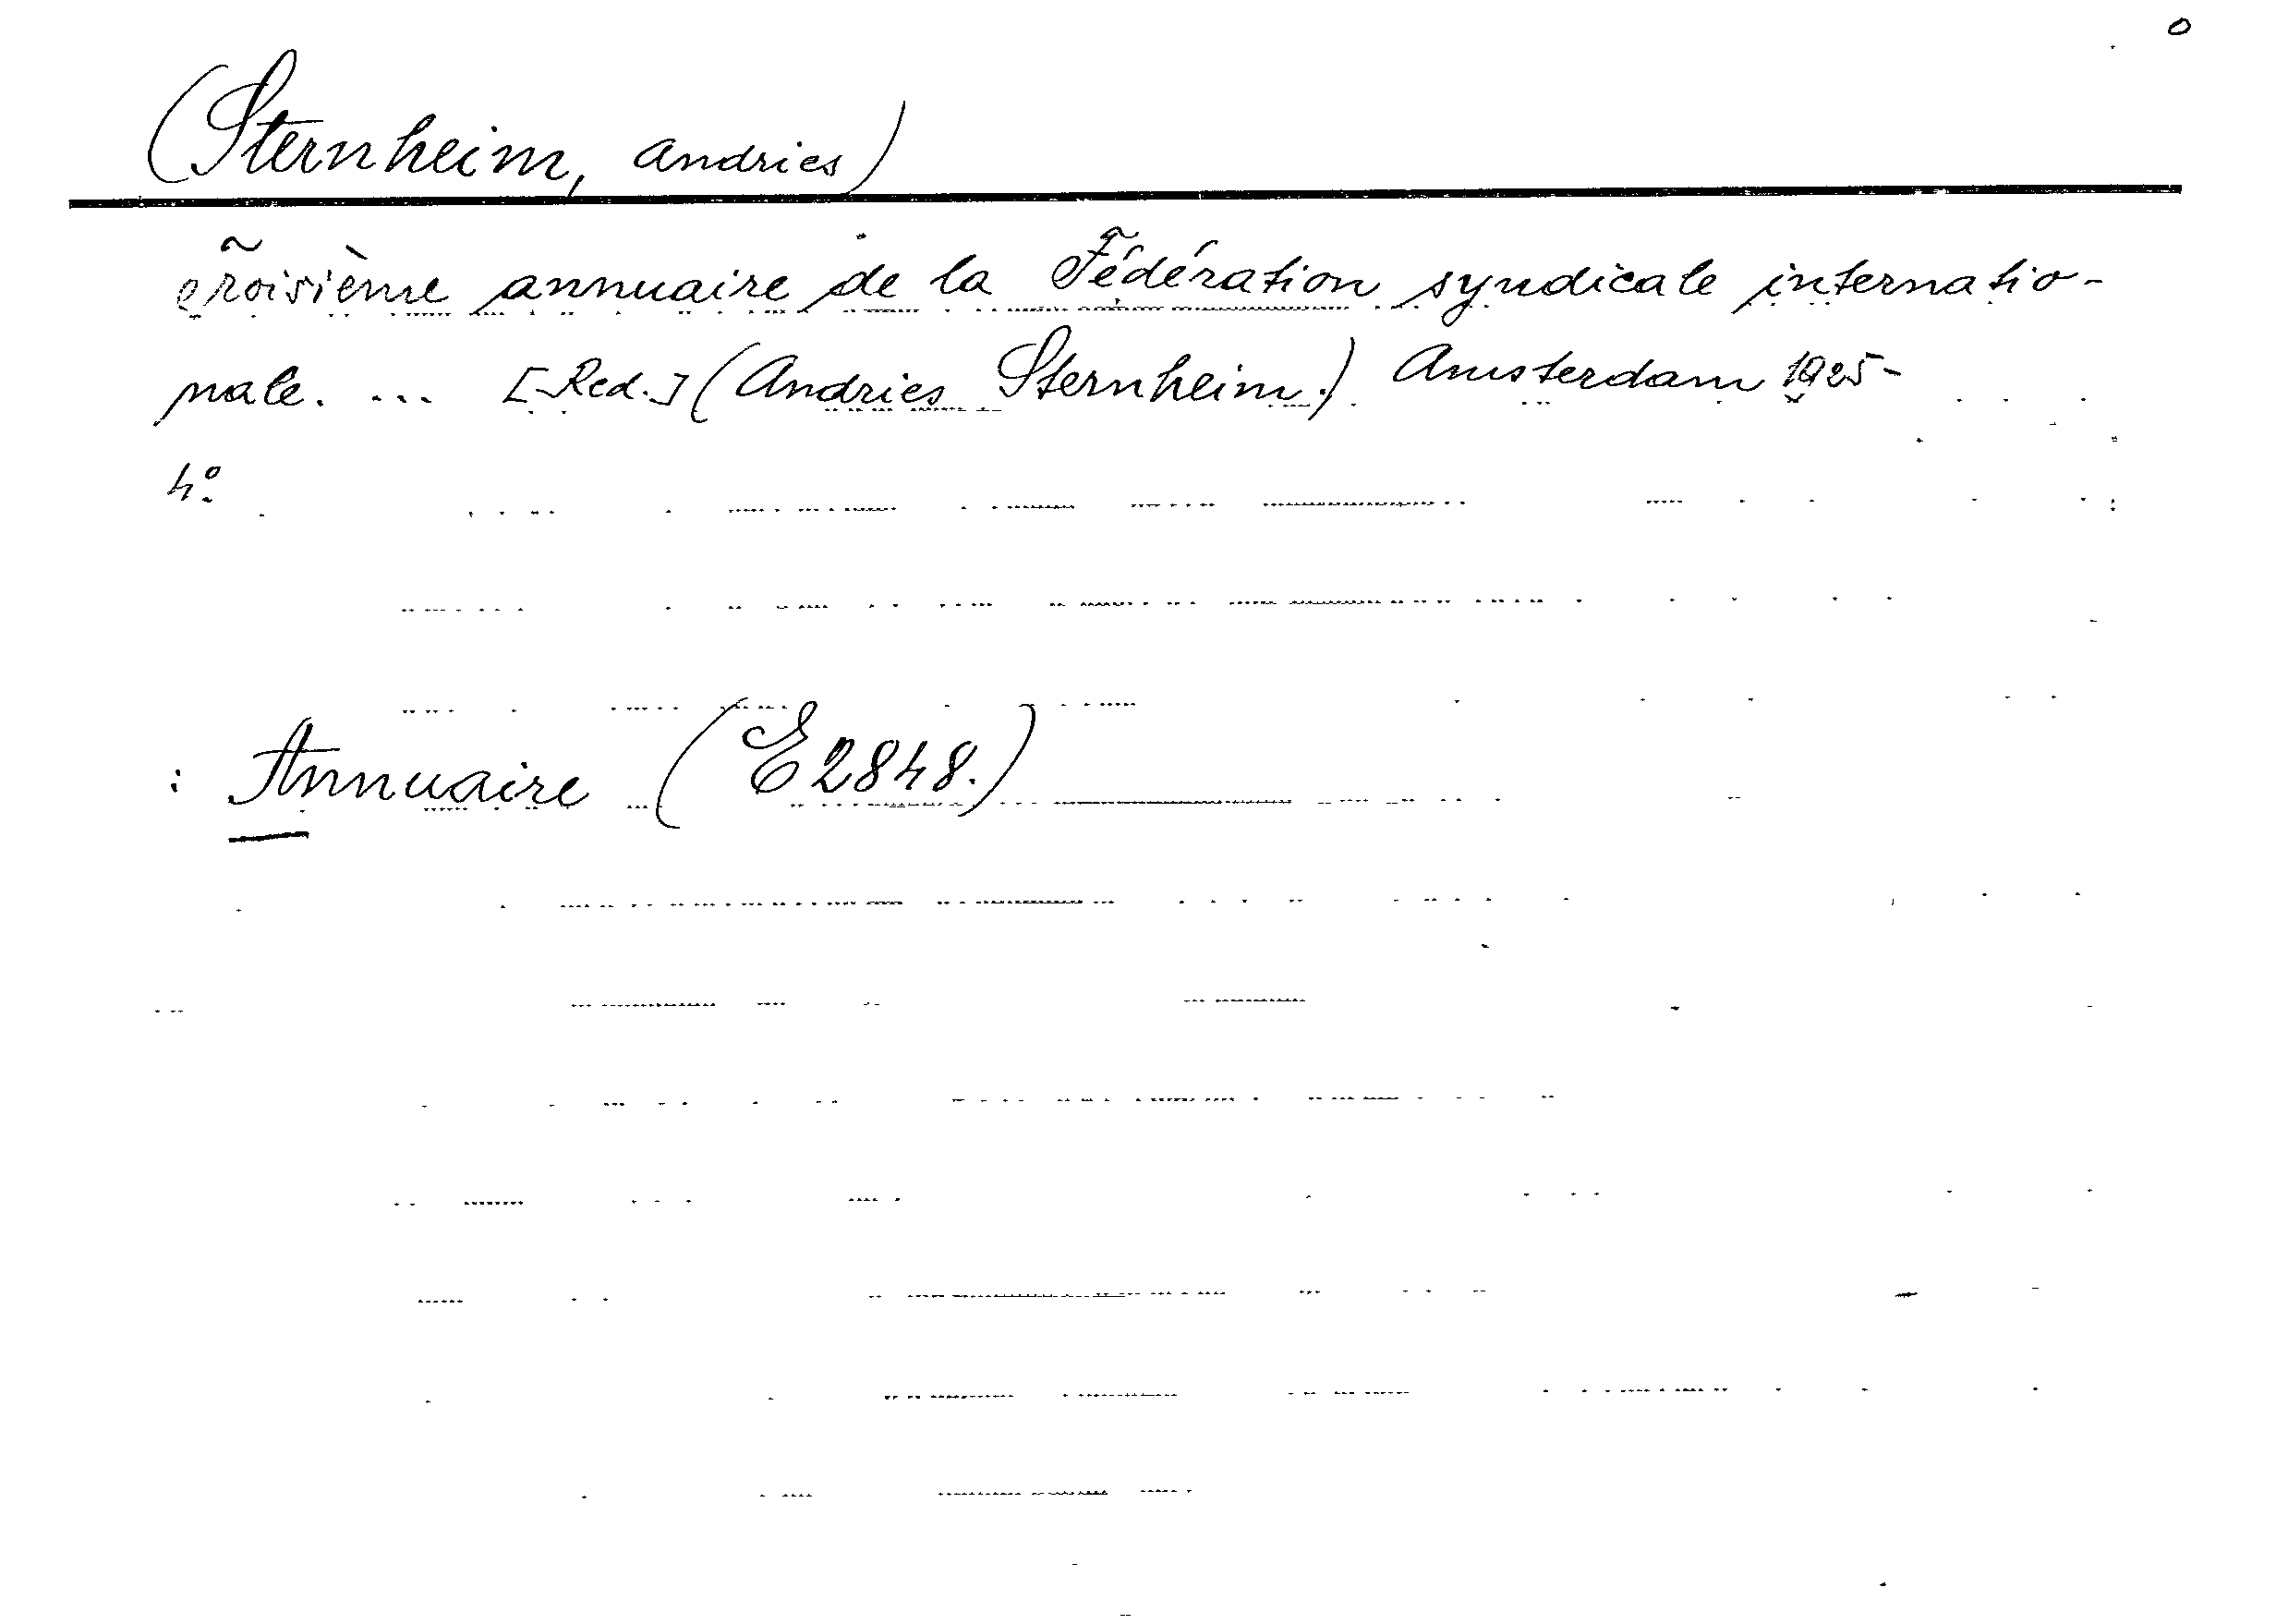 o
(Sternheim, Andries)
Troisième annuaire de la Fédération syndicale internatio-
nale. ... [Red.] (Andries Sternheim.) Amsterdam 1925-
4º.
: Annuaire (E2848.)